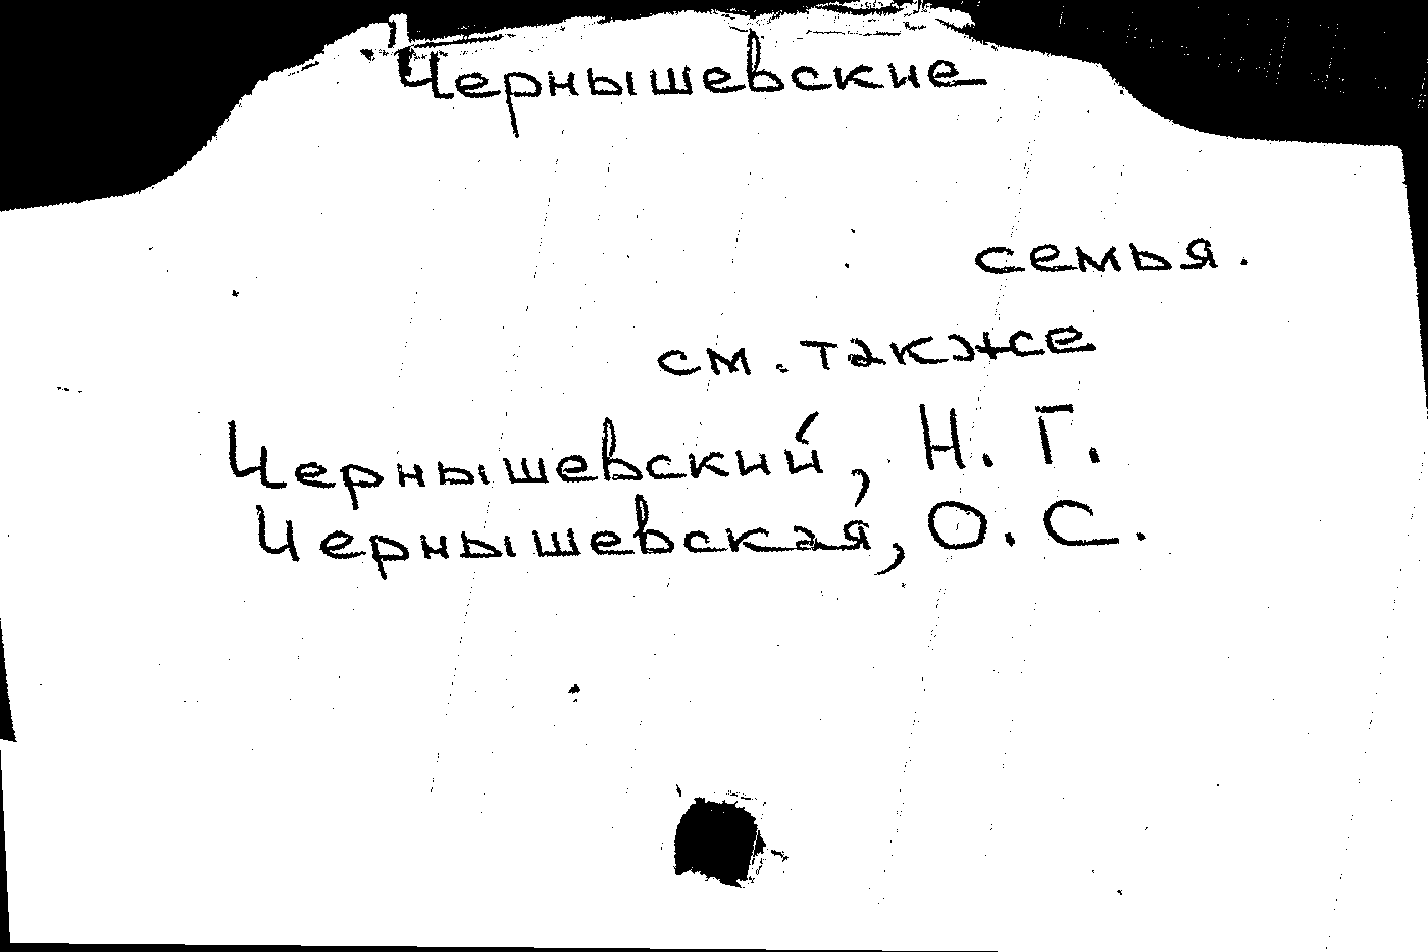 Чернышевские
семья.
см. также
Чернышевский, Н. Г.
Чернышевская, О. С.